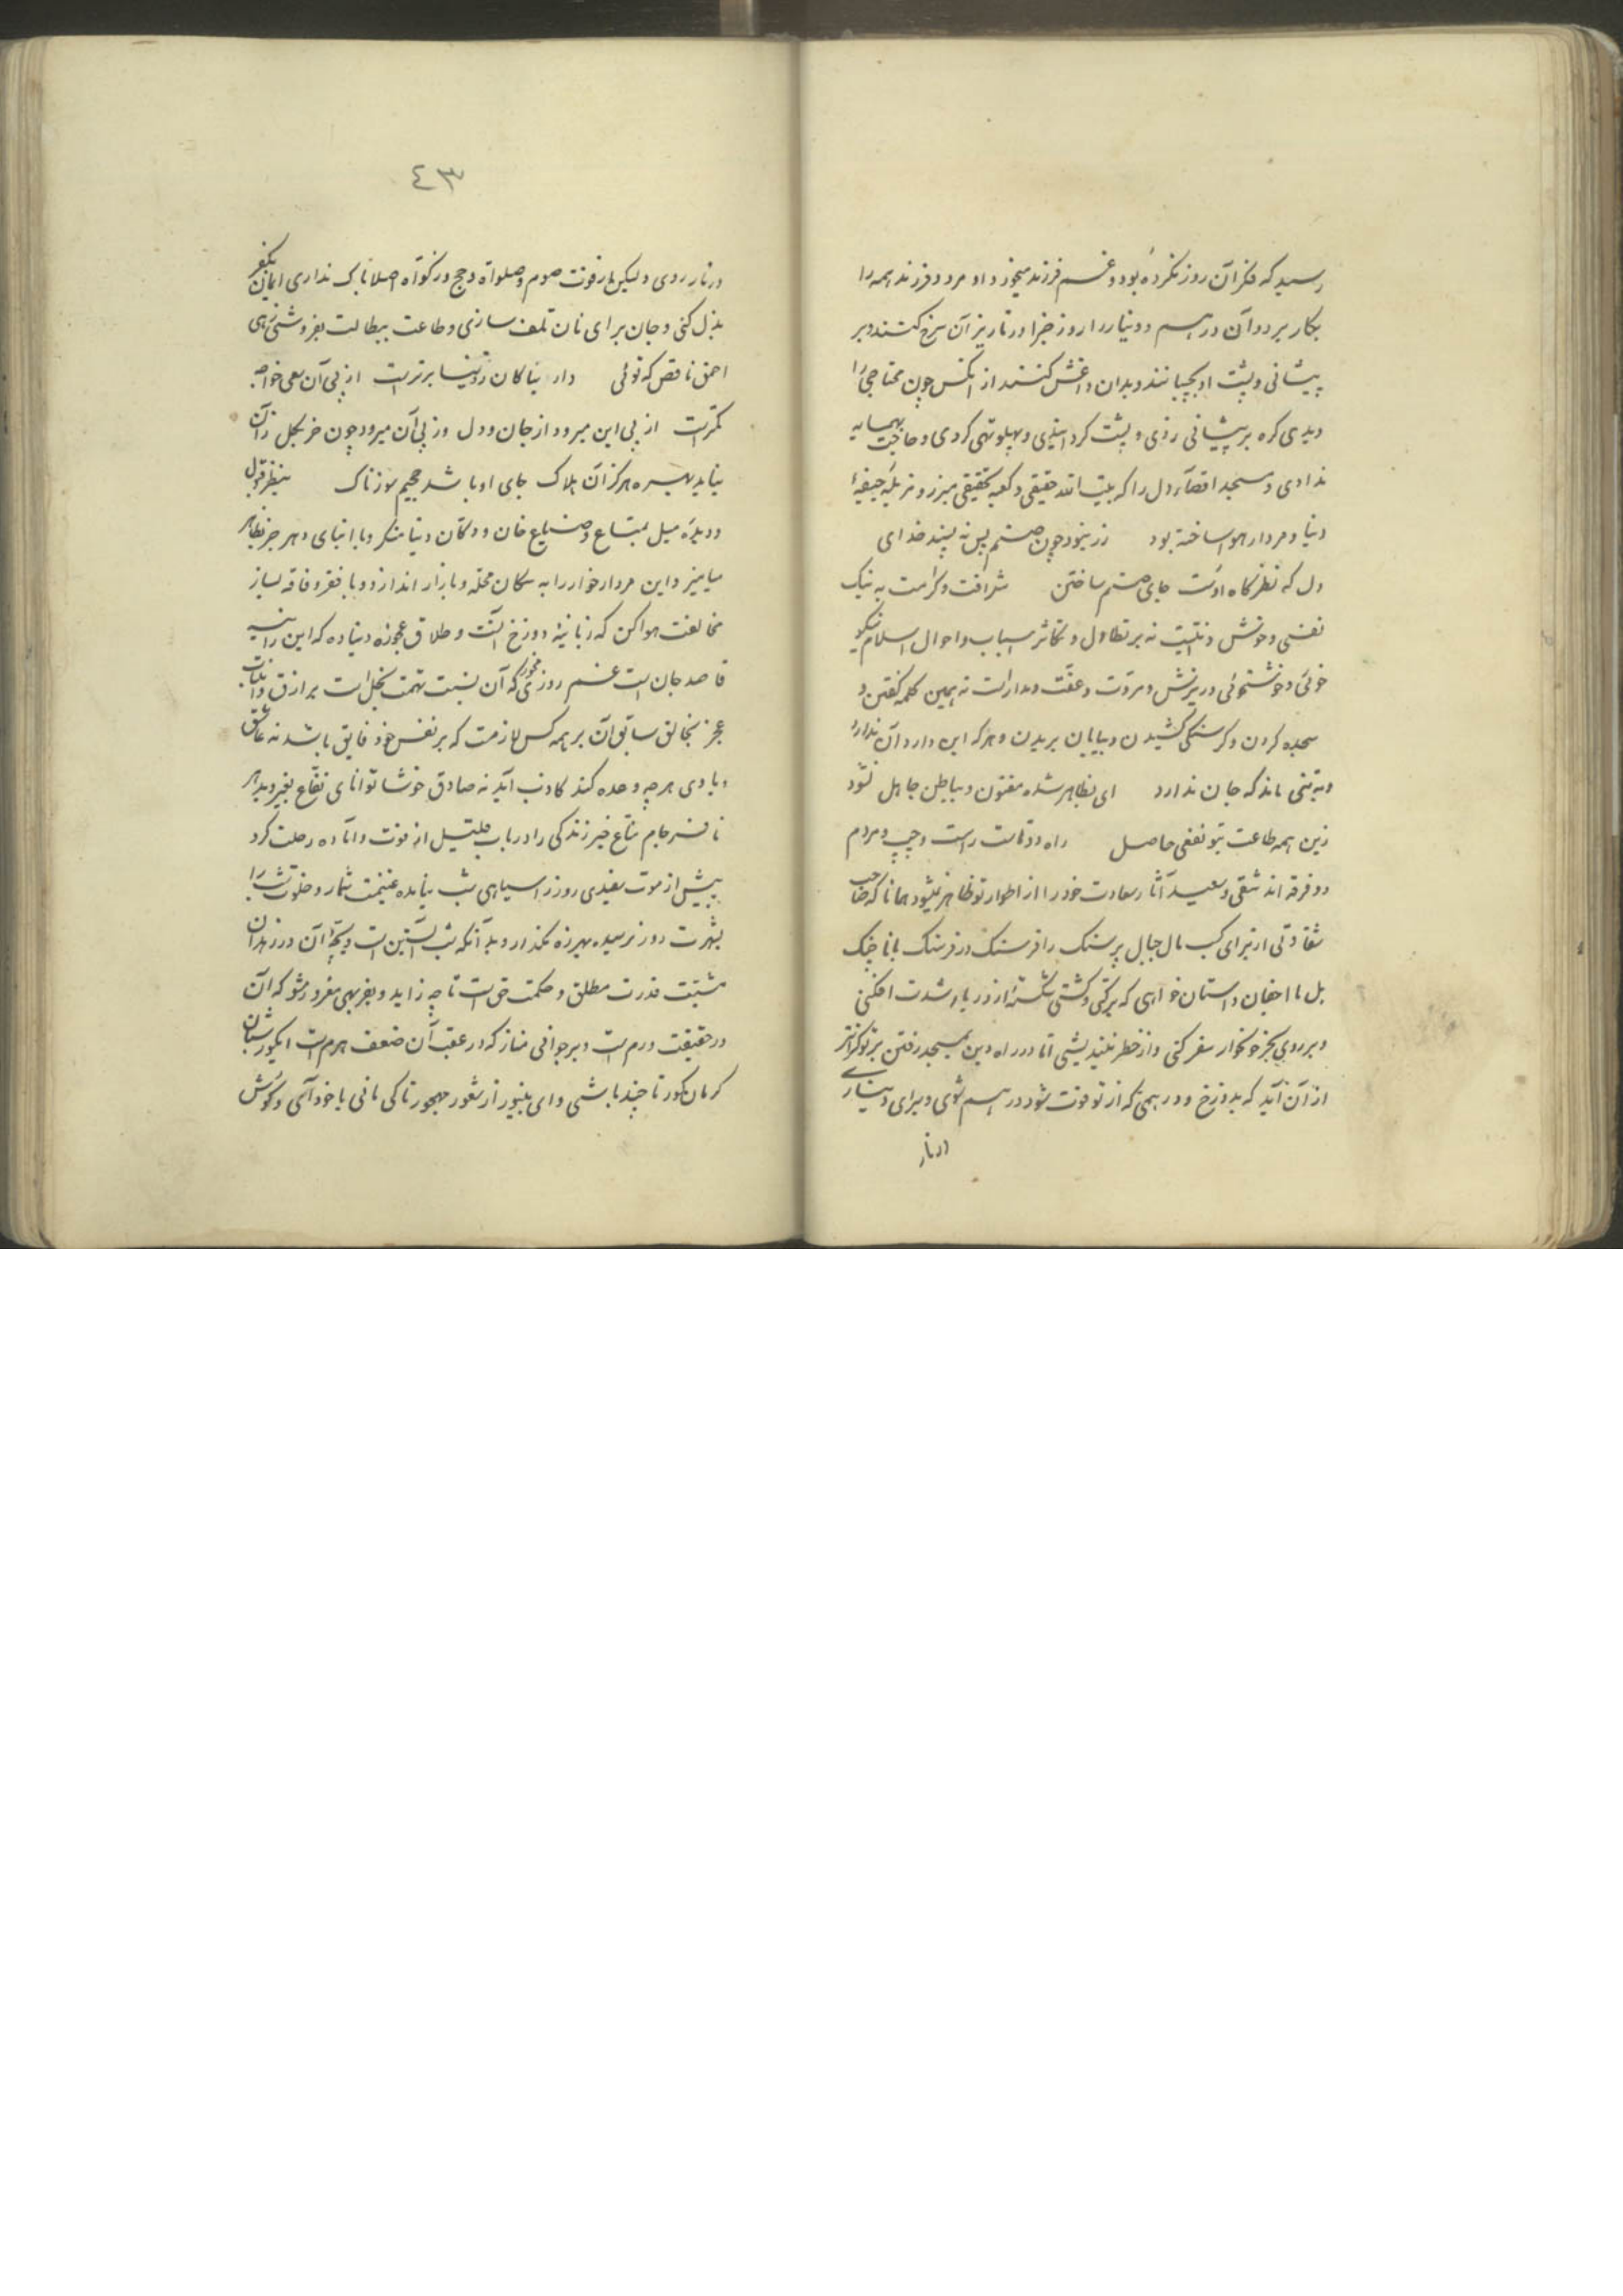 رسید که فکر آن روز نکرده بود و غم فرزند میخورد او مرد و فرزند همه را
بکار برد و آن درهم و دینار را روز جزا در نار نیران سرخ کنند و بر
پیشانی و پشت او بچپانند و بدان داغش کنند از آنکس چون محتاجی را
دیدی گره بر پیشانی زدی و پشت کرد و پهلو تهی کردی و حاجت همسایه
ندادی و مسجد اقصاء دل را که بیت الله حقیقی و کعبه تحقیقی مبرز و مزبله جیفهٔ
دنیا و مردار هوا ساخته بود زر نبود چون صنم پس نه پسند خدای
دل که نظرگاه اوست جای صنم ساختن شرافت و کرامت به نیک
نفسی و خوش نه بر تطاول و تکاثر اسباب و احوال اسلام نیکو
خوئی و خوشخوئی و مروت و عفت و مدار است نه همین کلمه گفتن و
سجده کردن و گرسنگی کشیدن و بیابان بریدن و هر که این دارد آن ندارد
و به تنی ماند که جان ندارد ای بظاهر شده مفتون و بباطن جاهل نشود
زین همه طاعت تو نفعی حاصل راه دو تاست راست و چپ و مردم
دو فرقه اند شقی و سعید آثار سعادت خود را از اطوار تو ظاهر نمیشود همانا که صاحب
شقاوتی از برای کسب مال جبال پر سنگ را فرسنگ در فرسنگ با ناخنک
بل با اجفان
و بر روی بحر خونخوار سفر کنی و از خطر نیندیشی اما در راه دین بمسجد رفتن بر تو گرانتر
از آن آید که بدوزخ و درهمی که از تو فوت شود درهم شوی و برای دیناری
در نار
٤٣
در نار روی و لیکن از فوت صوم و صلواة و حج و زکوٰة اصلا باک نداری ایمان بکفر
بذل کنی و جان برای نان تلف سازی و طاعت ببطالت بفروشی زهی
احمق ناقص که توئی دار بقا کان ز دنیا برتر است از پی آن سعی خواجه
کمتر است از پی این میرود از جان و دل وز پی آن میرود چون خر بگل زان
نیابد بهره هرگز آن هلاک جای او باشد جحیم سوزناک بنظر قبول
و دیده میل بمتاع و ضیاع خان و دکان دنیا منگر و با ابنای دهر جز بظاهر
میامیز و این مردار خوار را به سگان محله و بازار انداز و با فقر و فاقه بساز
مخالفت هوا کن که زبانیهٔ دوزخ است و طلاق عجوزه دنیا ده که این زانیه
قاصد جان است غم روزی مخور که آن نسبت تهمت بخل است بر رازق و اثبات
عجز بخالق سابق آن بر همه کس لازمست که بر نفس خود فایق باشد نه عاشق
و با وی هر چه وعده کند کاذب آید نه صادق خوشا توانای نفاع بغیر و بد هر
نافرجام متاع خیر زندگی را دریاب قبل از فوت و آماده رحلت گرد
پیش از موت سفیدی روز را سیاهی شب نیامده غنیمت شمار و خلوت شب را
بشهرت روز نرسیده بهرزه مگذار و بدانکه شب آبستن است و بچهٔ آن در زهدان
مشیت قدرت مطلق و حکمت حق است تا چه زاید و بفربهی مغرور مشو که آن
در حقیقت ورم است و بر جوانی مناز که در عقب آن ضعف هرم است ای کور
کرمان کور تا چند باشی و ای از شعور مهجور تا کی مانی با خود آی و گوش